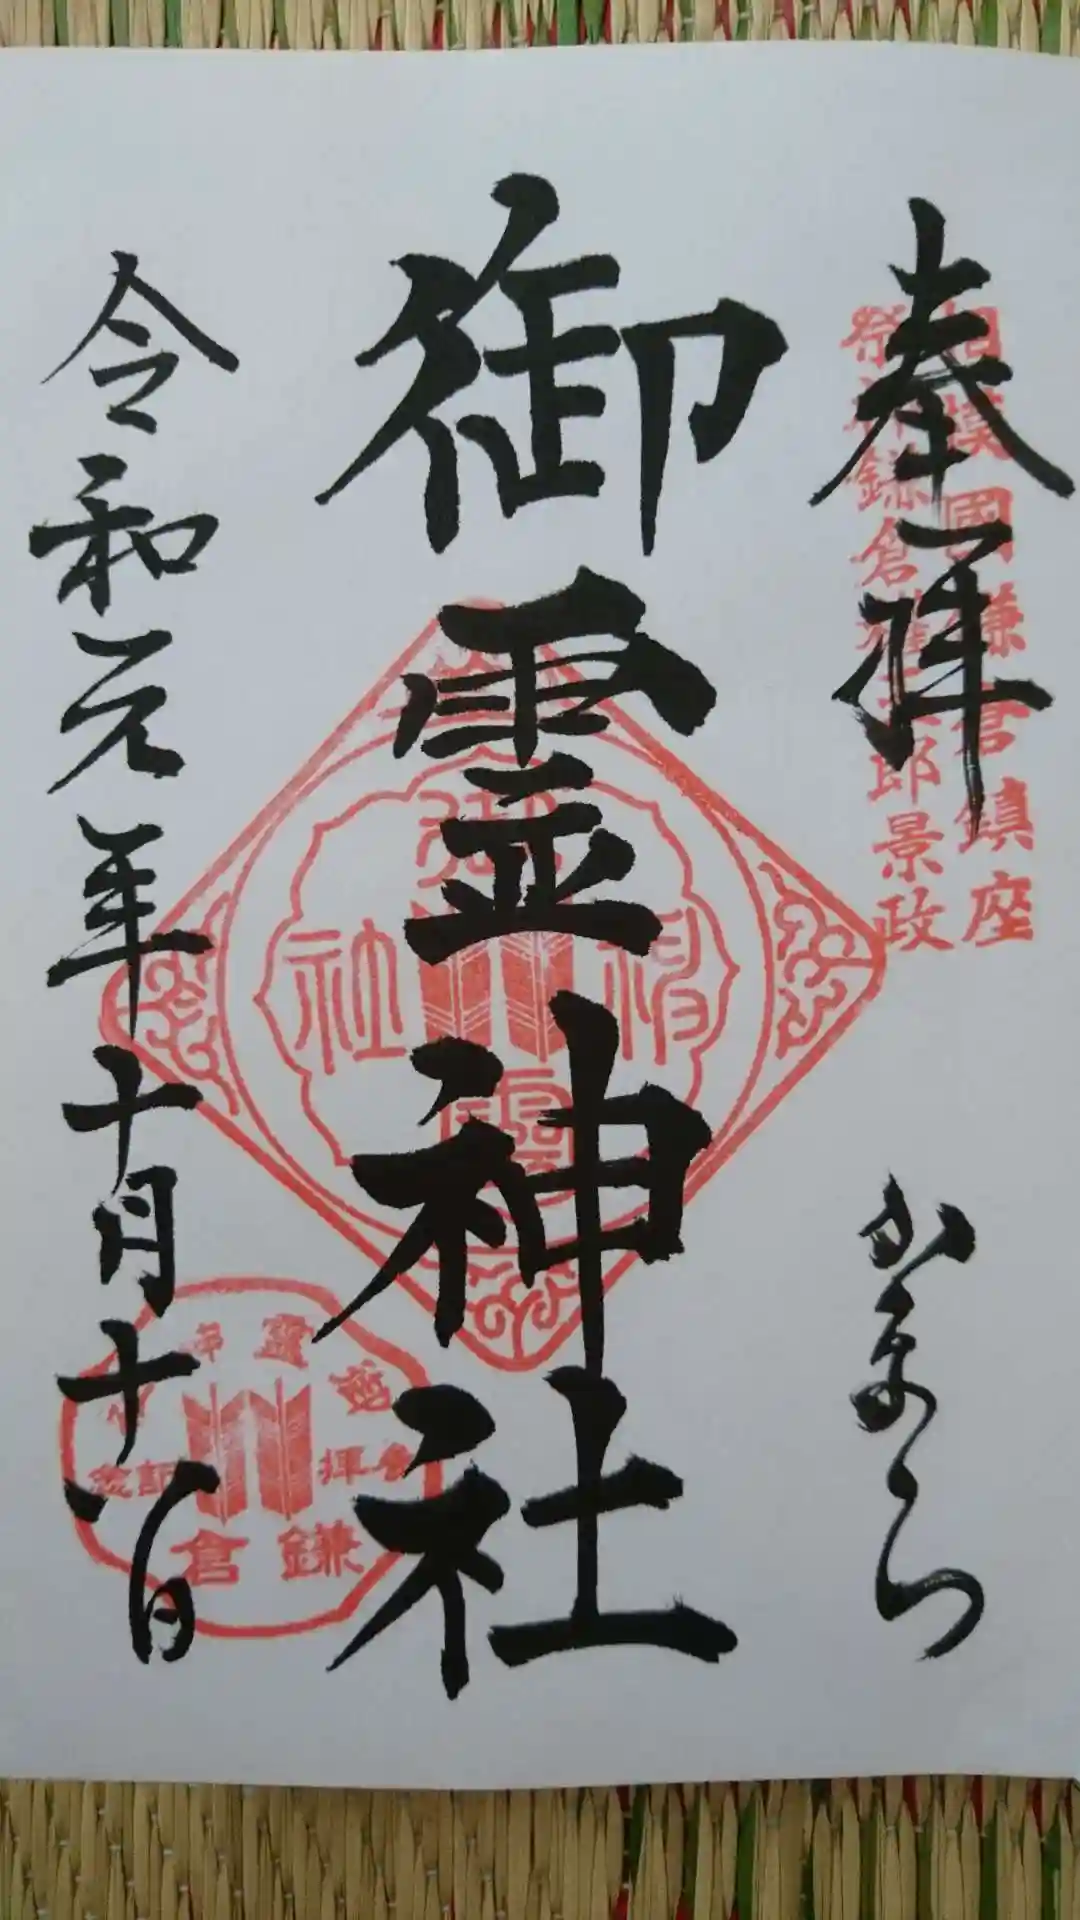 奉拝
相模國鎌倉鎮座
祭神鎌倉権五郎景政
かまくら
御霊神社
御霊神社
令和元年十月十八日
御霊神社
参拝記念
鎌倉